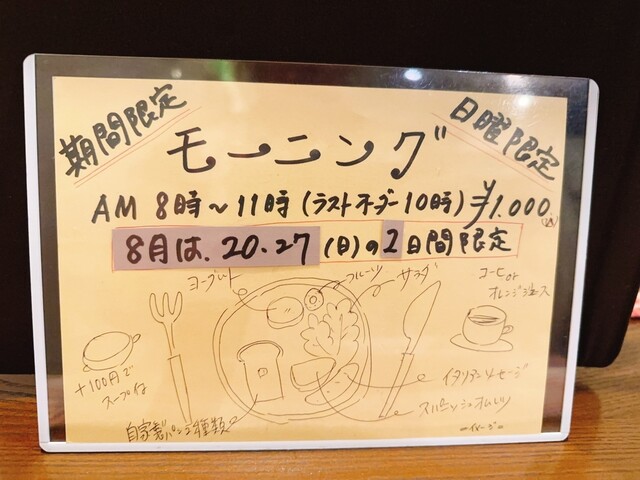 期間限定
日曜限定
モーニング
AM 8時~11時(ラストオーダー10時) ¥1.000
8月は、20・27(日)の2日間限定
ヨーグルト
フルーツ
サラダ
コーヒor
オレンジジュース
+100円で
スープ付
イタリアンソーセージ
スパニッシュオムレツ
自家製パン2種類
-イメージ-